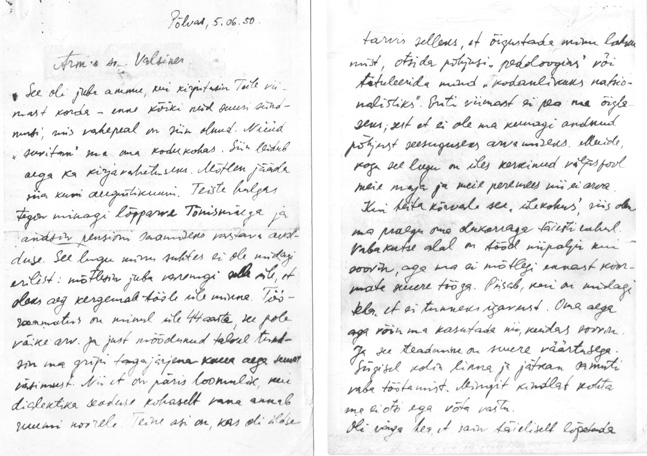 Põlvas, 5.06.50.
Armas sm. Valsiner
See oli juba ammu, kui kirjutasin Teile vii-
mast korda – enne kõiki neid suuri sünd-
musi, mis vahepeal on siin olnud. Nüüd
„suvitan” ma oma kodukohas. Siin leidub
aega ka kirjavahetuseks. Mõtlen jääda
siia kuni augustikuuni. Teiste hulgas
tegin minagi lõpparve Tõnismäega ja
andsin pensioni saamiseks vastava aval-
duse. See lugu minu suhtes ei ole midagi
erilist: mõtlesin juba varemgi selle üle, et
oleks aeg kergemale tööle üle minna. Töö-
raamatus on minul üle 44 aasta, see pole
väike arv. Ja just möödunud talvel tund-
sin ma gripi tagajärjena kaua aega suurt
väsimust. Nii et on päris loomulik, kui
dialektika seaduse kohaselt vana annab
ruumi noorele. Teine asi on, kas oli üldse
tarvis selleks, et õigustada minu lahku-
mist, otsida põhjusi „pedoloogias” või
tituleerida mind „kodanlikuks natsio-
nalistiks”. Eriti viimast ei pea ma õigla-
seks, sest et ei ole ma kunagi andnud
põhjust seesuguseks arvamiseks. Muide,
kogu see lugu on üles kerkinud väljaspool
meie maja ja meie peremees nii ei arva.
Kui jätta kõrvale see „ülekohus”, siis olen
ma praegu oma olukorraga täiesti rahul.
Vabakutse alal on tööd niipalju kui
soovin, aga ma ei mõtlegi ennast koor-
mata suure tööga. Piisab, kui on midagi
teha, et ei tunneks igavust. Oma aega
aga võin ma kasutada nii, kuidas soovin.
Ja see teadmine on suure väärtusega.
Sügisel kolin linna ja jätkan samuti
vaba töötamist. Mingit kindlat kohta
ma ei otsi ega võta vastu.
Oli väga hea, et sain täielikult lõpetada